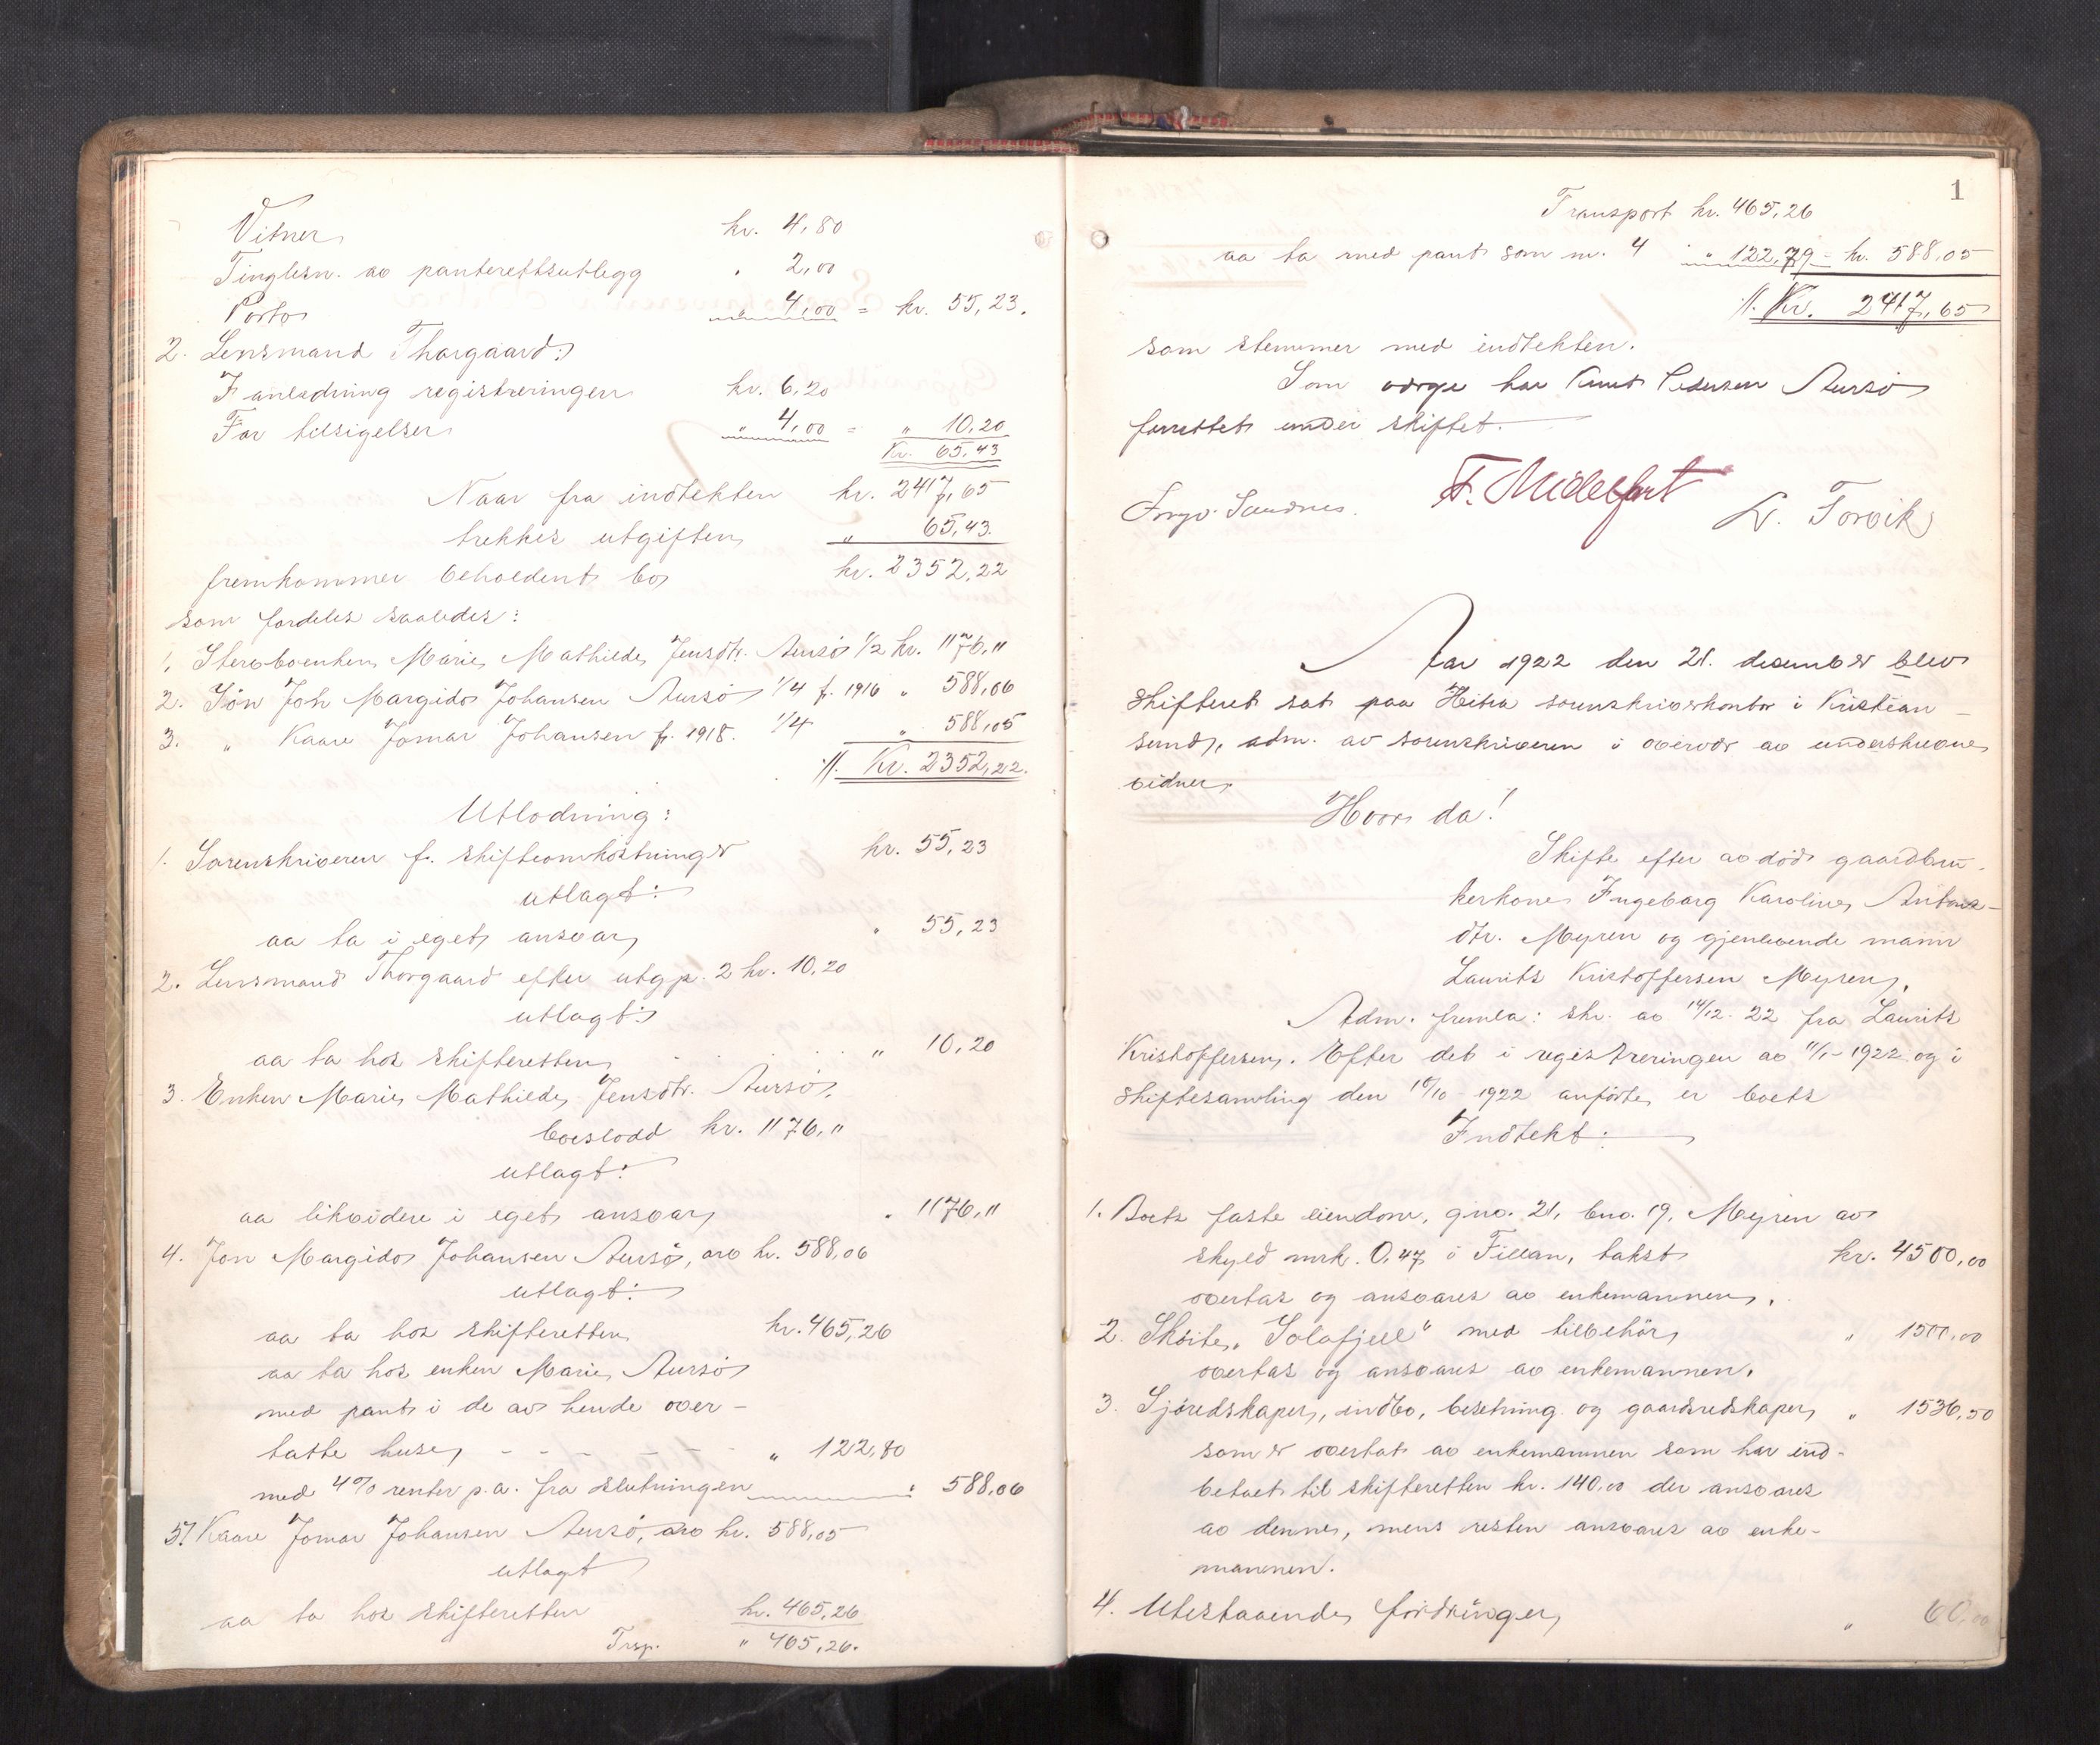 Vitner kr. 4,80
Tinglesn. av panterettsutlegg " 2,00
Porto " 4,00 = kr. 55,23.
2. Lensmand Thorgaard:
I anledning registreringen kr. 6,20
For tilsigelser " 4,00 = " 10,20
Kr. 65,43
Naar fra indtekten kr. 2417,65
trekkes utgiften " 65,43
fremkommer beholdent bo kr. 2352,22
som fordeles saaledes:
1. Stervboenken Marie Mathilde Jensdtr. Aursö 1/2 kr. 1176,11
2. Sön Joh Margido Johansen Aursö 1/4 f. 1916 " 588,06
3. " Kaare Jomar Johansen f. 1918. 1/4 " 588,05
./. Kr. 2352,22.
Utlodning:
1. Sorenskriveren f. skifteomkostninger kr. 55,23
utlagt:
aa ta i eget ansvar " 55,23
2. Lensmand Thorgaard efter utg p. 2 kr. 10,20
utlagt:
aa ta hos skifteretten " 10,20
3. Enken Marie Mathilde Jensdtr. Aursö,
boeslodd kr. 1176,11
utlagt:
aa likvidere i eget ansvar " 1176,11
4. Jon Margido Johansen Aursö, arv kr. 588,06
utlagt:
aa ta hos skifteretten kr. 465,26
aa ta hos enken Marie Aursö
med pant i de av hende over-
tatte huse, - - - - - - " 122,80
med 4% renter p.a. fra slutningen : 588,06
5. Kaare Jomar Johansen Aursö, arv kr. 588,05
utlagt
aa ta hos skifteretten kr. 465,26
Trsp. " 465,26.
1
Transport kr. 465,26
aa ta med pant som nr. 4 " 122,79 = kr. 588,05
./. Kr. 2417,65
som stemmer med indtekten.
Som verge har Knut Pedersen Aursö
forrettet under skiftet.
Ingv. Sandnes. F. Midelfart L. Torvik
Aar 1922 den 21. desember blev
skifteret sat paa Hitra sorenskriverkontor i Kristian-
sund, adm. av sorenskriveren i overvær av underskrevne
vidner
Hvor da!
Skifte efter avdöd gaardbru-
kerkone Ingeborg Karoline Antons-
dtr. Myren og gjenlevende mann
Laurits Kristoffersen Myren.
Adm. fremla: skr. av 14/12. 22 fra Laurits
Kristoffersen. Efter det i registreringen av 11/1- 1922 og i
skiftesamling den 10/10 1922 anförte er boets
Indtekt:
1. Boets faste eiendom, gno. 21, bno. 19, Myren av
skyld mrk. 0,47 i Fillan, takst kr. 4500,00
overtas og ansvares av enkemannen.
2. Sköite "Solafjell" med tilbehör " 1500,00
overtas og ansvares av enkemannen.
3. Sjöredskaper, indbo, besetning og gaardsredskaper " 1536,50
som er overtat av enkemannen som har ind-
betalt til skifteretten kr. 140,00 der ansvares
av denne, mens resten ansvares av enke-
mannen.
4. Utestaaende fordringer " 60,00